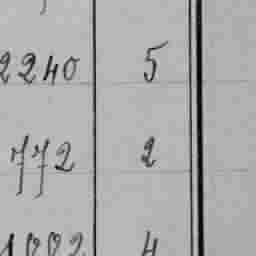 2240 5
772 2
1002 4